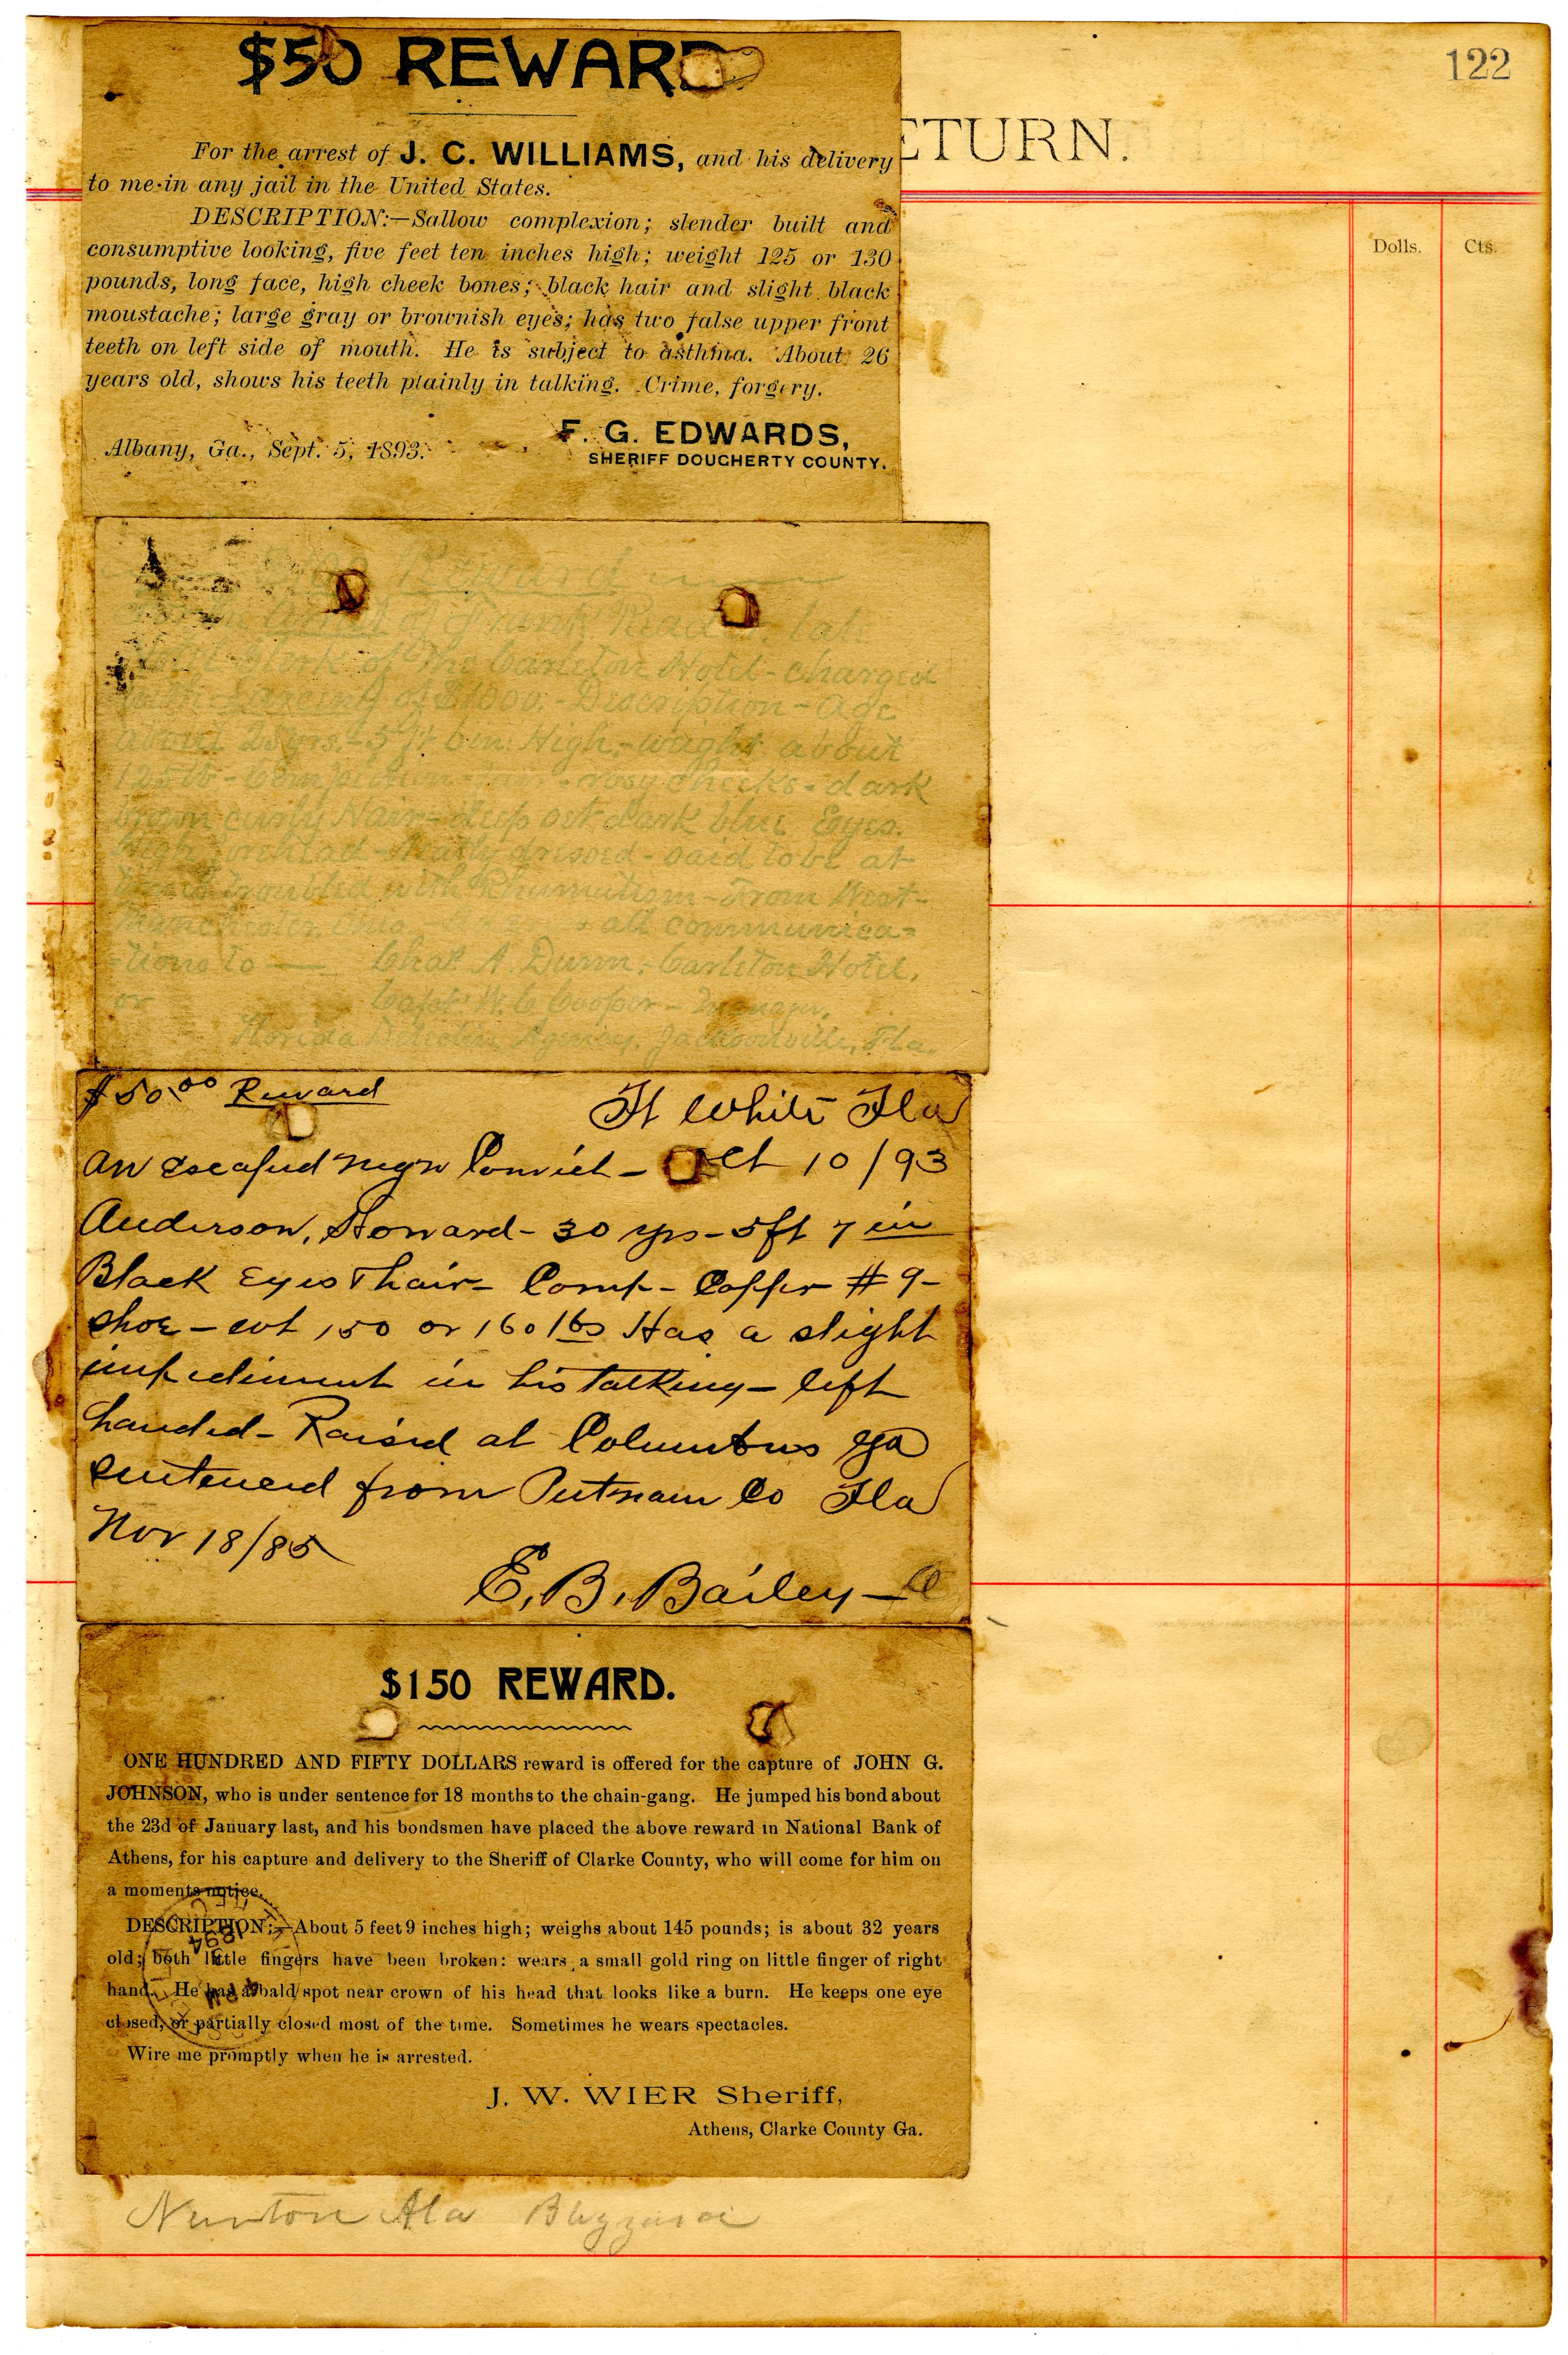 122
ETURN.
Dolls. Cts.
$50 REWARD
For the arrest of J. C. WILLIAMS, and his delivery
to me in any jail in the United States.
DESCRIPTION:—Sallow complexion; slender built and
consumptive looking, five feet ten inches high; weight 125 or 130
pounds, long face, high cheek bones; black hair and slight black
moustache; large gray or brownish eyes; has two false upper front
teeth on left side of mouth. He is subject to asthma. About 26
years old, shows his teeth plainly in talking. Crime, forgery.
F. G. EDWARDS,
Albany, Ga., Sept. 5, 1893.
SHERIFF DOUGHERTY COUNTY.
Reward
arrest of Frank late
Clerk of The Carleton Hotel - charged
with Larceny of $1000. - Description - Age
about 5 ft 6 in. High, - weight about
125 lb - rosy cheeks - dark
brown curly Hair - deep set dark blue Eyes.
High forehead - dressed - said to be at
times troubled with Rhumatism - From West-
all communica=
=tions to — Chas A. Dunn, - Carleton Hotel,
or Capt W. C. Cooper - Manager,
Florida Detective Agency, Jacksonville, Fla.
$50.00 Reward Ft White Fla
An escaped negro Convict - Oct 10/93
Anderson, Howard - 30 yrs - 5 ft 7 in
Black Eyes & hair - Comp - Copper # 9 -
shoe - wt 150 or 160 lbs Has a slight
impediment in his talking - left
handed - Raised at Columbus Ga
sentenced from Putnam Co Fla
Nov 18/85
E. B. Bailey -
$150 REWARD.
ONE HUNDRED AND FIFTY DOLLARS reward is offered for the capture of JOHN G.
JOHNSON, who is under sentence for 18 months to the chain-gang. He jumped his bond about
the 23d of January last, and his bondsmen have placed the above reward in National Bank of
Athens, for his capture and delivery to the Sheriff of Clarke County, who will come for him on
a moments notice.
DESCRIPTION:—About 5 feet 9 inches high; weighs about 145 pounds; is about 32 years
old; both little fingers have been broken: wears a small gold ring on little finger of right
hand. He has a bald spot near crown of his head that looks like a burn. He keeps one eye
closed, or partially closed most of the time. Sometimes he wears spectacles.
Wire me promptly when he is arrested.
J. W. WIER Sheriff,
Athens, Clarke County Ga.
1894
Newton Ala